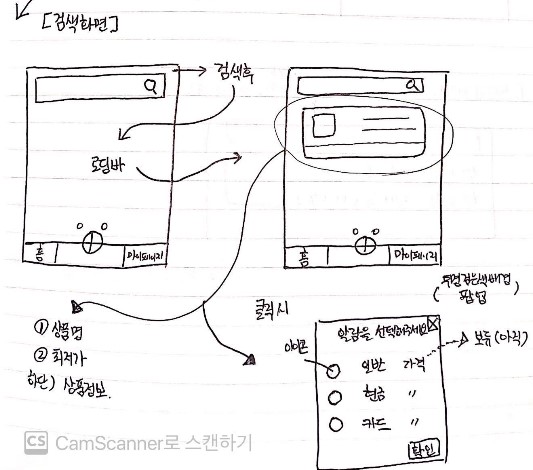 [검색화면]
검색후
로딩바
홈
마이페이지
홈
마이페이지
① 상품명
② 최저가
하단) 상품정보.
클릭시
(투명검은색배경
팝업)
알람을 선택해주세요
아이콘
일반 가격
보류 (아직)
현금 〃
카드 〃
확인
CS CamScanner로 스캔하기